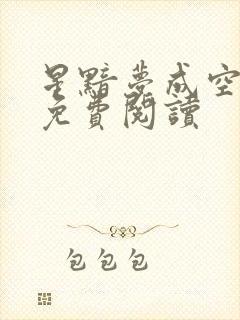 星黯夢成空
免費閱讀
包包包